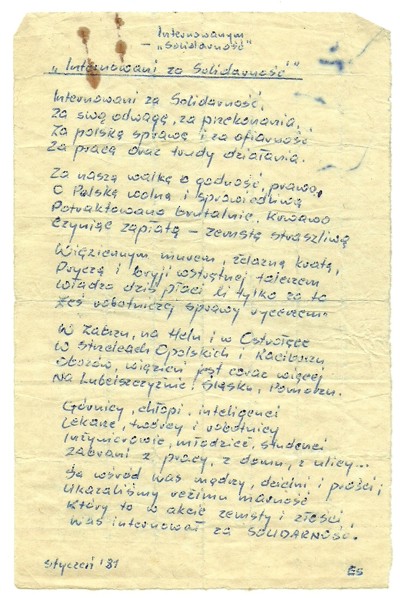 Internowanym
– „Solidarność”
„Internowani za Solidarność”
Internowani za Solidarność,
Za swą odwagę, za przekonania,
Za polską sprawę i za ofiarność
Za pracę oraz trudy działania.
Za naszą walkę o godność, prawo,
O Polskę wolną i sprawiedliwą
Potraktowano brutalnie, krwawo
Czyniąc zapłatą – zemstą straszliwą
Więziennym murem, żelazną kratą,
Pryczą i bryji wstrętnej talerzem
Władza dziś płaci li tylko za to
Żeś robotniczej sprawy rycerzem
W Zabrzu, na Helu i w Ostrołęce
W Strzelcach Opolskich i Raciborzu
Obozów, więzień jest coraz więcej
Na Lubelszczyźnie, Śląsku, Pomorzu.
Górnicy, chłopi, inteligenci
Lekarze, twórcy i robotnicy
Inżynierowie, młodzież, studenci
Zabrani z pracy, z domu, z ulicy...
Są wśród was mądry, dzielni i prości;
Ukazaliśmy reżimu marność
Który to w akcie zemsty i złości
Was internował za SOLIDARNOŚĆ.
styczeń '81